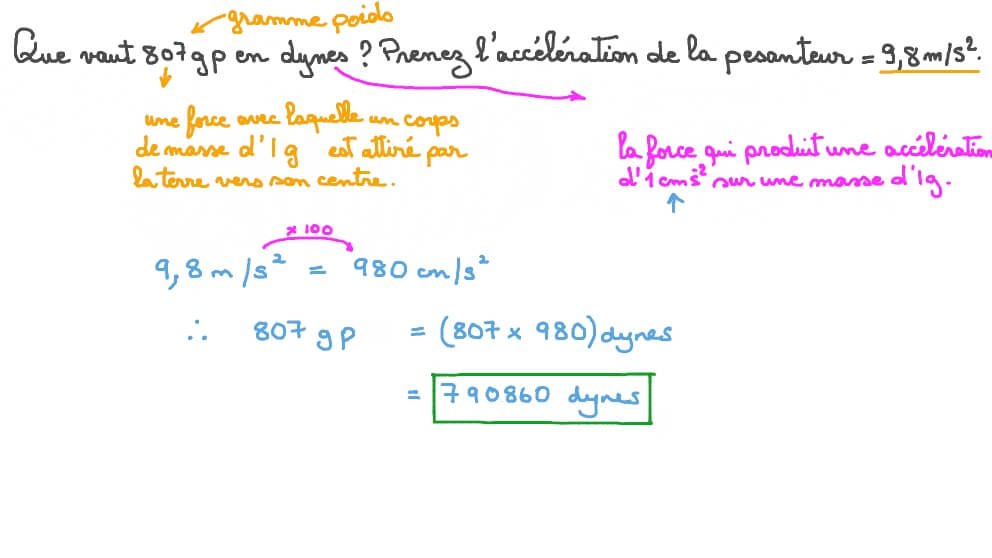 gramme poids
Que vaut 807 gp en dynes ? Prenez l'accélération de la pesanteur = 9,8 m/s².
une force avec laquelle un corps
de masse d'1 g est attiré par
la terre vers son centre.
la force qui produit une accélération
d'1 cm s̈² sur une masse d'1g.
× 100
9,8 m/s² = 980 cm/s²
∴ 807 gp = (807 × 980) dynes
= 790860 dynes